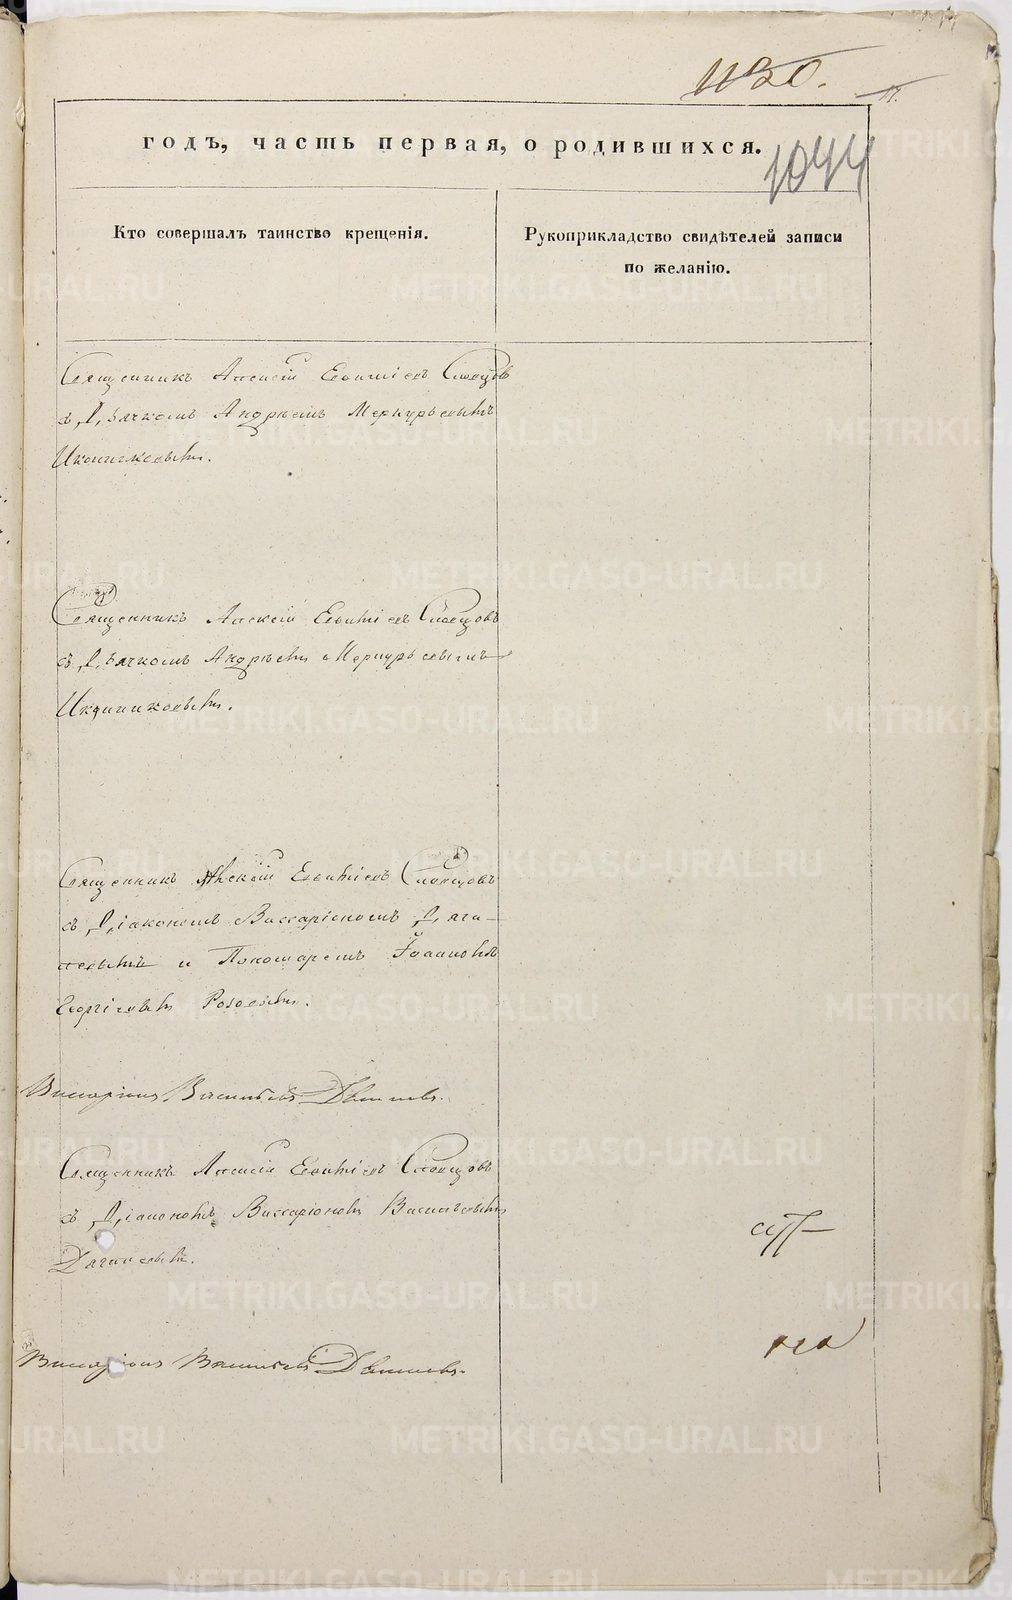 1130.
11.
годъ, часть первая, о родившихся.
1044
Кто совершалъ таинство крещенія.
Рукоприкладство свидѣтелей записи
по желанію.
Священникъ Алексій Евѳиміевъ Словцовъ
съ Дьячкомъ Андреемъ Меркурьевымъ
Иконниковымъ.
Священникъ Алексій Евѳиміевъ Словцовъ
съ Дьячкомъ Андреемъ Меркурьевымъ
Иконниковымъ.
Священникъ Алексій Евѳиміевъ Словцовъ
съ Діакономъ Виссаріономъ Дяги-
левымъ и Пономаремъ Іоанномъ
Георгіевымъ Розовымъ.
Виссаріонъ Васильевъ
Священникъ Алексій Евѳиміевъ Словцовъ
съ Діакономъ Виссаріономъ Васильевымъ
Дягилевымъ.
Виссаріонъ Васильевъ
METRIKI.GASO-URAL.RU